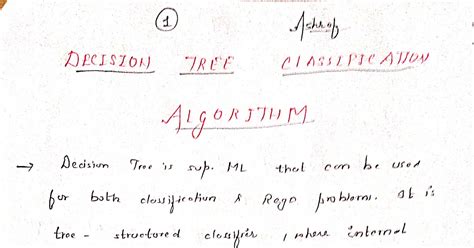 1 Ashraf
DECISION TREE CLASSIFICATION
ALGORITHM
→ Decision Tree is sup. ML that can be used
for both classification & Regn problems. It is
tree - structured classifier, where internal